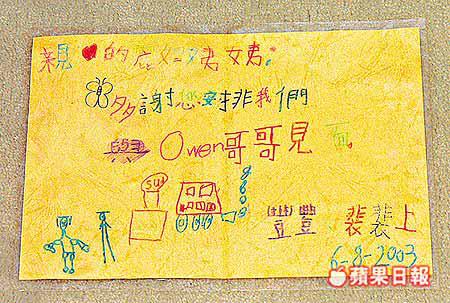 親❤的庇姬姨姨:
多謝您安排我們
與Owen哥哥見面。
SU
豐豐 裴裴上
6-8-2003
蘋果日報